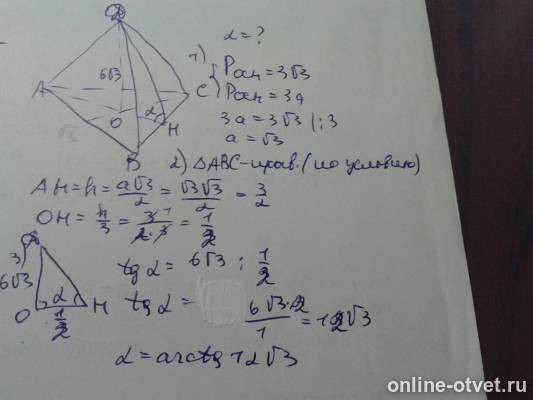 α = ?
1)
Pосн = 3√3
Pосн = 3a
3a = 3√3 |:3
a = √3
A
B
C
O
H
α
6√3
2) △ABC - прав. (по условию)
AH = h = a√3/2 = √3√3/2 = 3/2
OH = h/3 = 3·1/2·3 = 1/2
6√3
O
α
H
1/2
tg α = 6√3 : 1/2
tg α = 6√3·2/1 = 12√3
α = arctg 12√3
online-otvet.ru